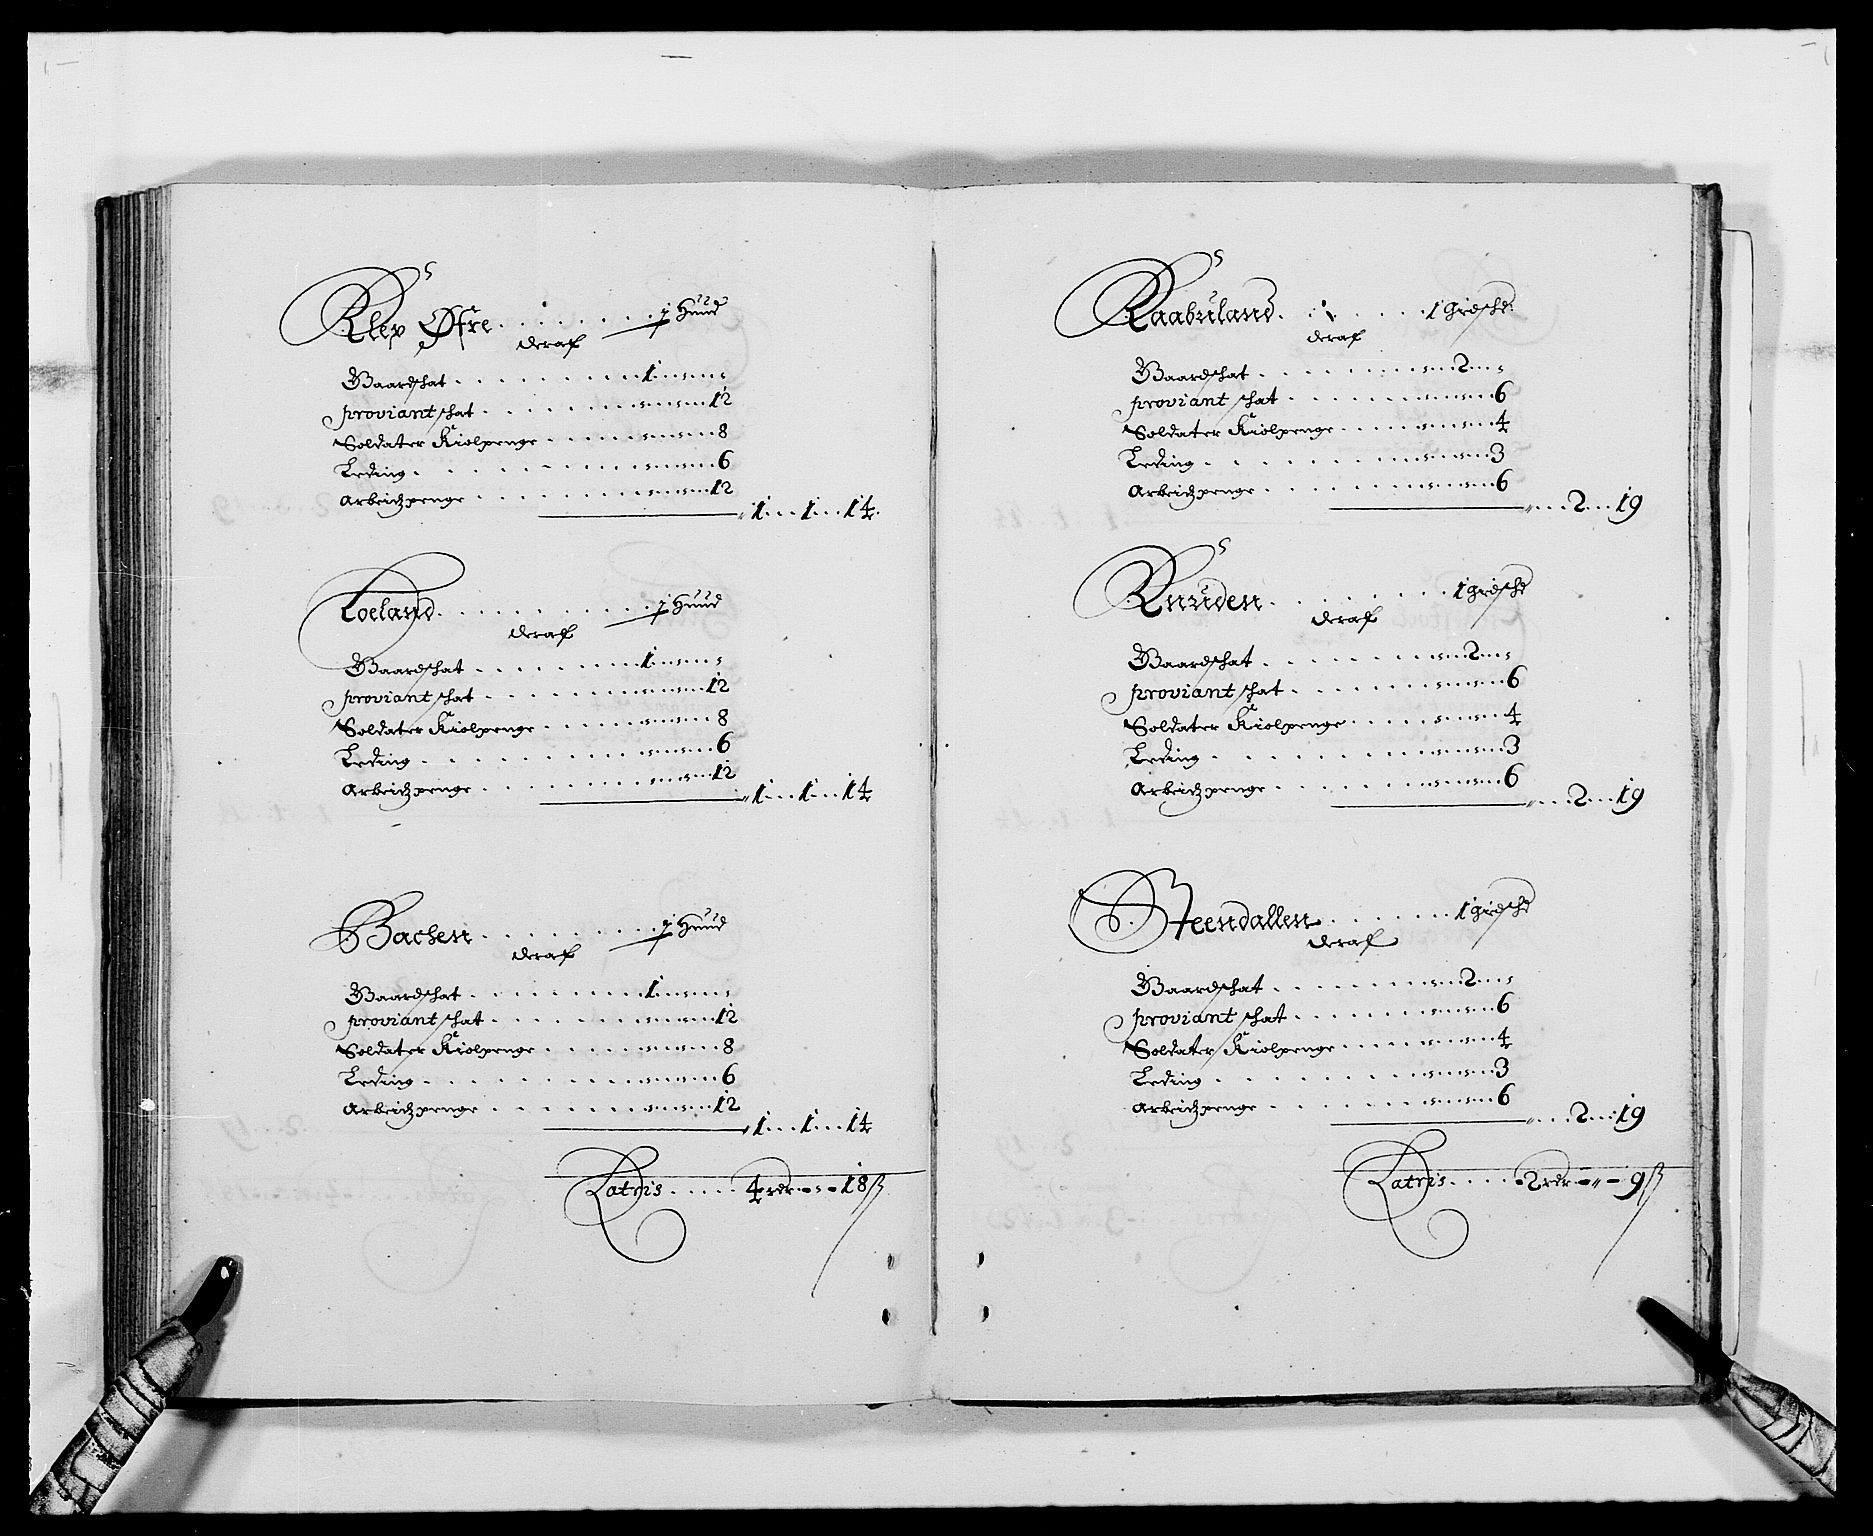 Klep Øfre . . . . . . . . 1 Huud
deraf
Gaardschat . . . . . . . . 1
proviant schat . . . . . . 12
Soldater Kiolpenge . . . . 8
Leding . . . . . . . . . . 6
Arbeidzpenge . . . . . . . 12
1 . . . 1 . . . 14
Loeland . . . . . . . . 1 Huud
deraf
Gaardschat . . . . . . . . 1
proviant schat . . . . . . 12
Soldater Kiolpenge . . . . 8
Leding . . . . . . . . . . 6
Arbeidzpenge . . . . . . . 12
1 . . . 1 . . . 14
Bachen . . . . . . . . 1 Huud
deraf
Gaardschat . . . . . . . . 1
proviant schat . . . . . . 12
Soldater Kiolpenge . . . . 8
Leding . . . . . . . . . . 6
Arbeidzpenge . . . . . . . 12
1 . . . 1 . . . 14
Latris . . . . . 4 rdr - - - 18 ß
Raabuland . . . . . . . 1 giedschd:
deraf
Gaardschat . . . . . . . . 2
proviant schat . . . . . . 6
Soldater Kiolpenge . . . . 4
Leding . . . . . . . . . . 3
Arbeidzpenge . . . . . . . 6
2 . . . 19
Knuden . . . . . . . 1 giedschd
deraf
Gaardschat . . . . . . . . 2
proviant schat . . . . . . 6
Soldater Kiolpenge . . . . 4
Leding . . . . . . . . . . 3
Arbeidzpenge . . . . . . . 6
2 . . . 19
Steendallen . . . . . . . 1 giedschd
deraf
Gaardschat . . . . . . . . 2
proviant schat . . . . . . 6
Soldater Kiolpenge . . . . 4
Leding . . . . . . . . . . 3
Arbeidzpenge . . . . . . . 6
2 . . . 19
Latris . . . . . 2 rdr - - - 9 ß